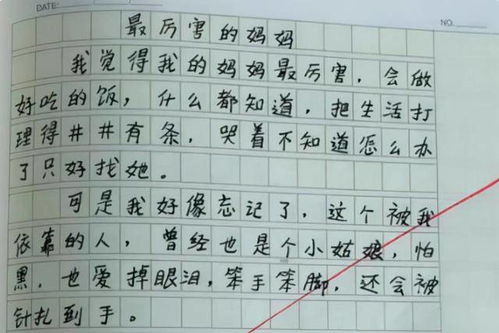 DATE:
NO.
最厉害的妈妈
我觉得我的妈妈最厉害，会做
好吃的饭，什么都知道，把生活打
理得井井有条，哭着不知道怎么办
了只好找她。
可是我好像忘记了，这个被我
依靠的人，曾经也是个小姑娘，怕
黑，也爱掉眼泪，笨手笨脚，还会被
针扎到手。